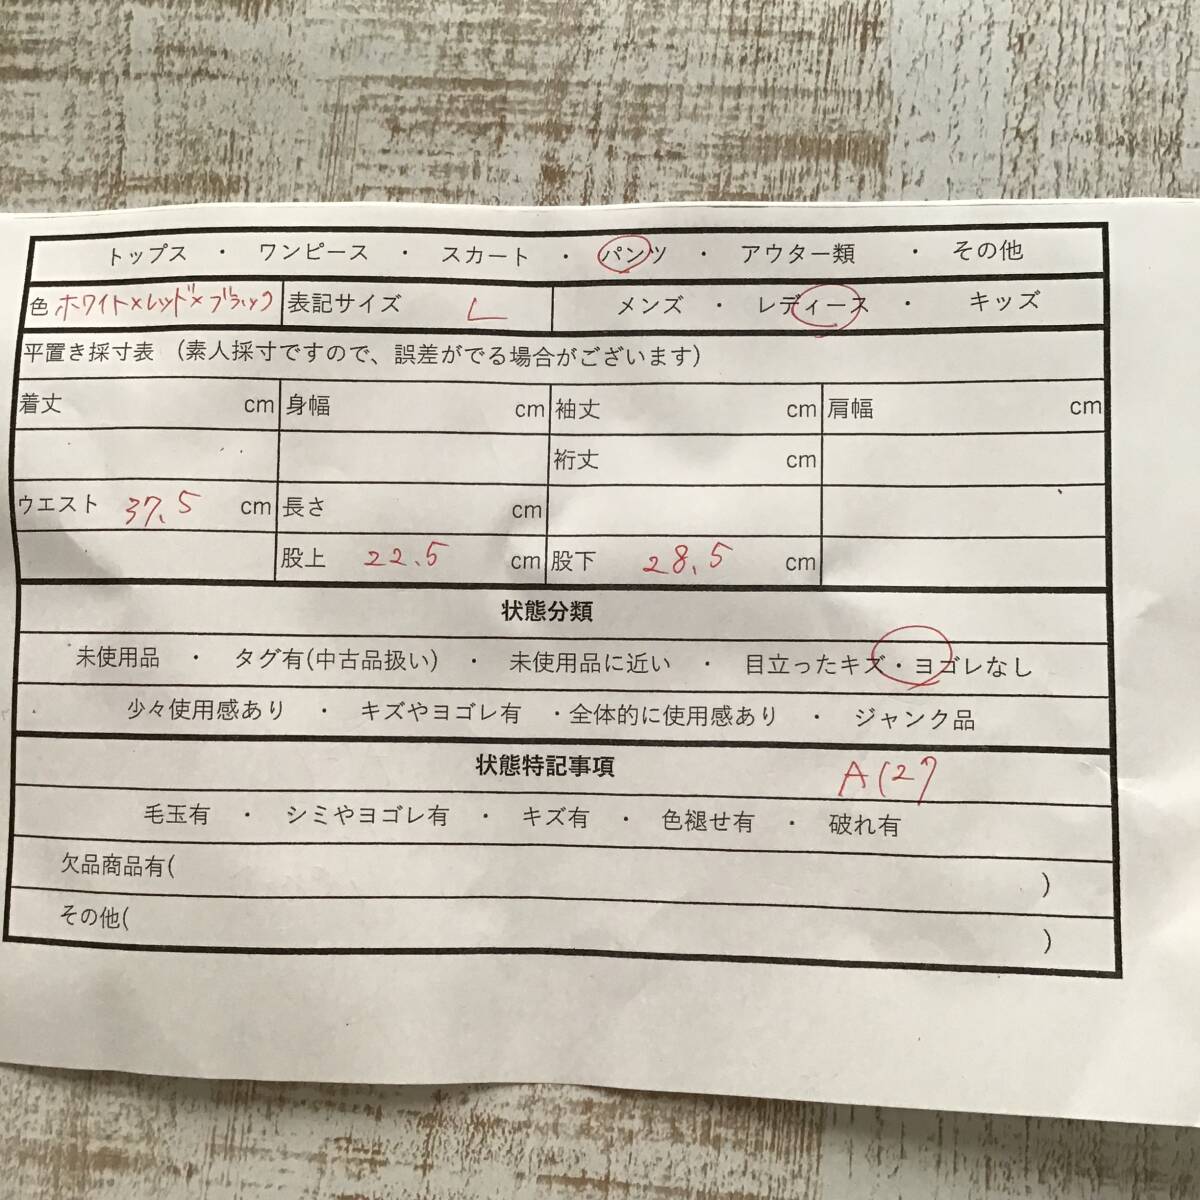 トップス ・ ワンピース ・ スカート ・ パンツ ・ アウター類 ・ その他
色 ホワイト×レッド×ブラック 表記サイズ L メンズ ・ レディース ・ キッズ
平置き採寸表 (素人採寸ですので、誤差がでる場合がございます)
着丈 cm 身幅 cm 袖丈 cm 肩幅 cm
裄丈 cm
ウエスト 37.5 cm 長さ cm
股上 22.5 cm 股下 28.5 cm
状態分類
未使用品 ・ タグ有(中古品扱い) ・ 未使用品に近い ・ 目立ったキズ・ヨゴレなし
少々使用感あり ・ キズやヨゴレ有 ・全体的に使用感あり ・ ジャンク品
状態特記事項 A127
毛玉有 ・ シミやヨゴレ有 ・ キズ有 ・ 色褪せ有 ・ 破れ有
欠品商品有( )
その他( )